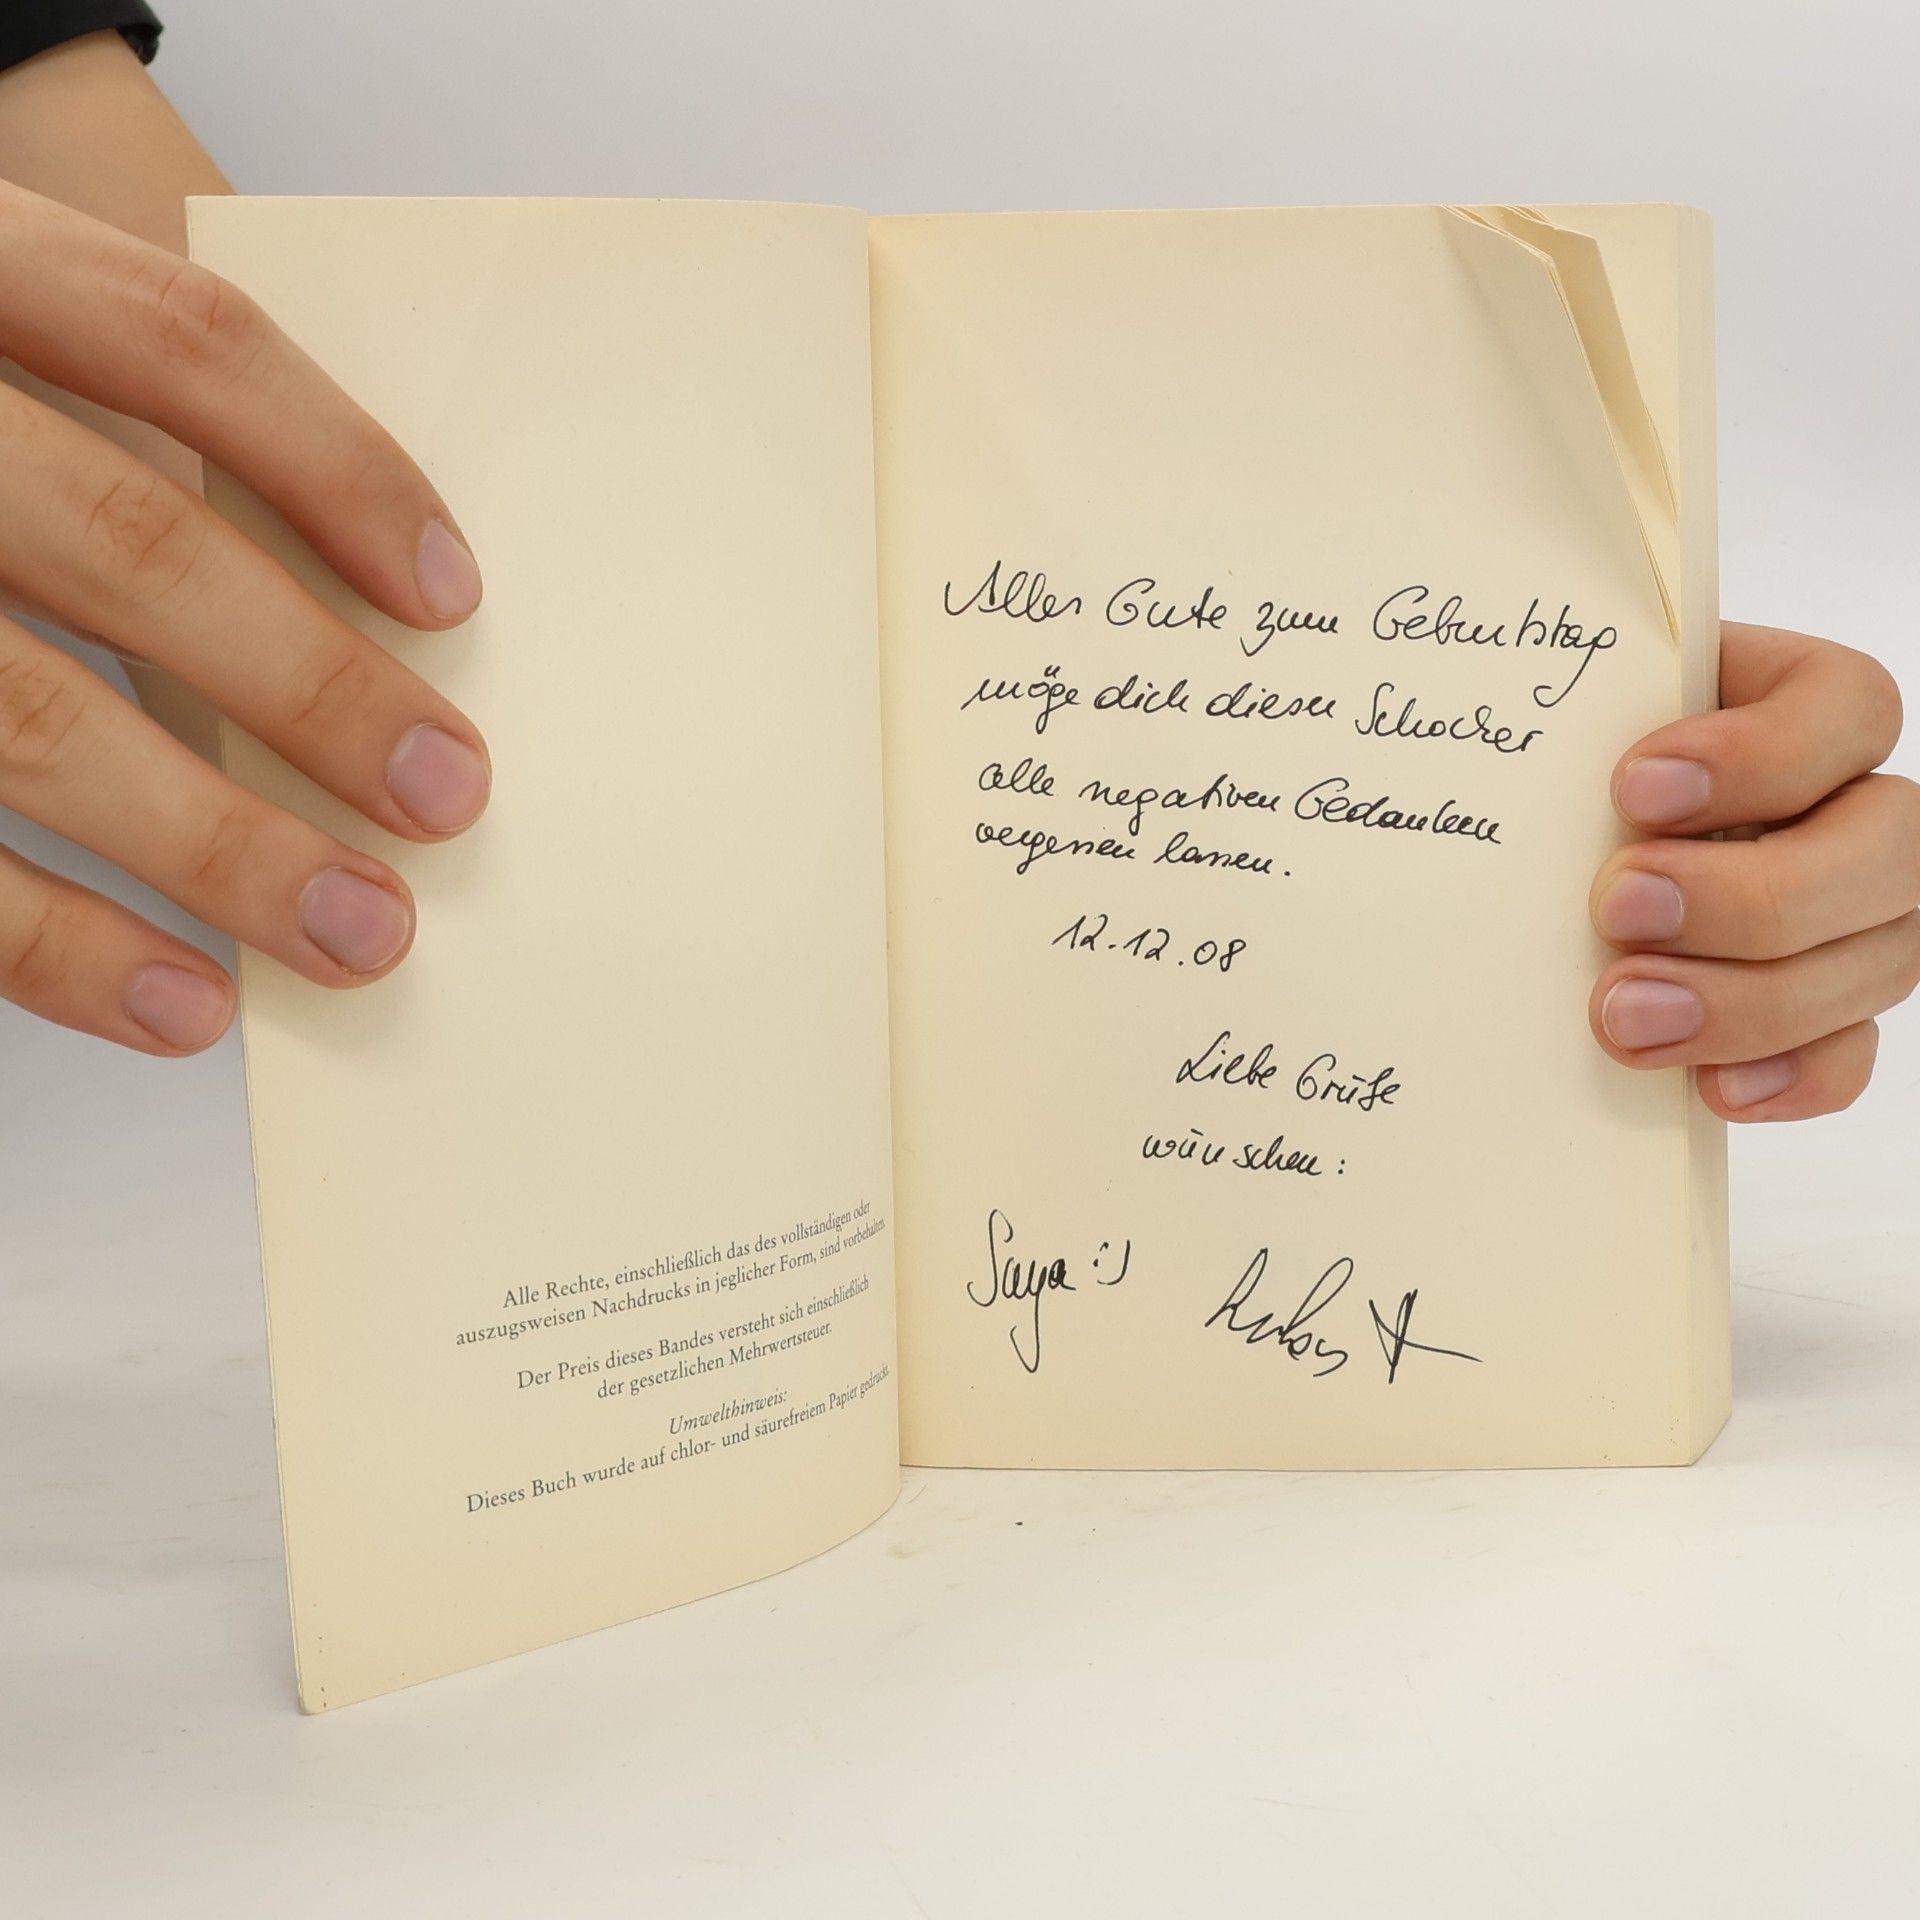 Alle Rechte, einschließlich das des vollständigen oder
auszugsweisen Nachdrucks in jeglicher Form, sind vorbehalten.
Der Preis dieses Bandes versteht sich einschließlich
der gesetzlichen Mehrwertsteuer.
Umwelthinweis:
Dieses Buch wurde auf chlor- und säurefreiem Papier gedruckt.
Alles Gute zum Geburtstag
möge dich dieser Schocker
alle negativen Gedanken
vergessen lassen.
12.12.08
Liebe Grüße
wünschen:
Saya :)